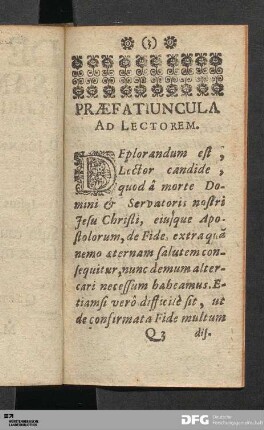 (3)
PRÆFATIUNCULA
AD LECTOREM.
DEplorandum est,
Lector candide,
quod â morte Do-
mini & Servatoris nostri
Jesu Christi, eiusque Apo-
stolorum, de Fide, extra quã
nemo æternam salutem con-
sequitur, nunc demum alter-
cari necessum habeamus. E-
tiamsi verò difficilè sit, ut
de confirmata Fide multum
Q3 dis-
DFG Deutsche
Forschungsgemeinschaft